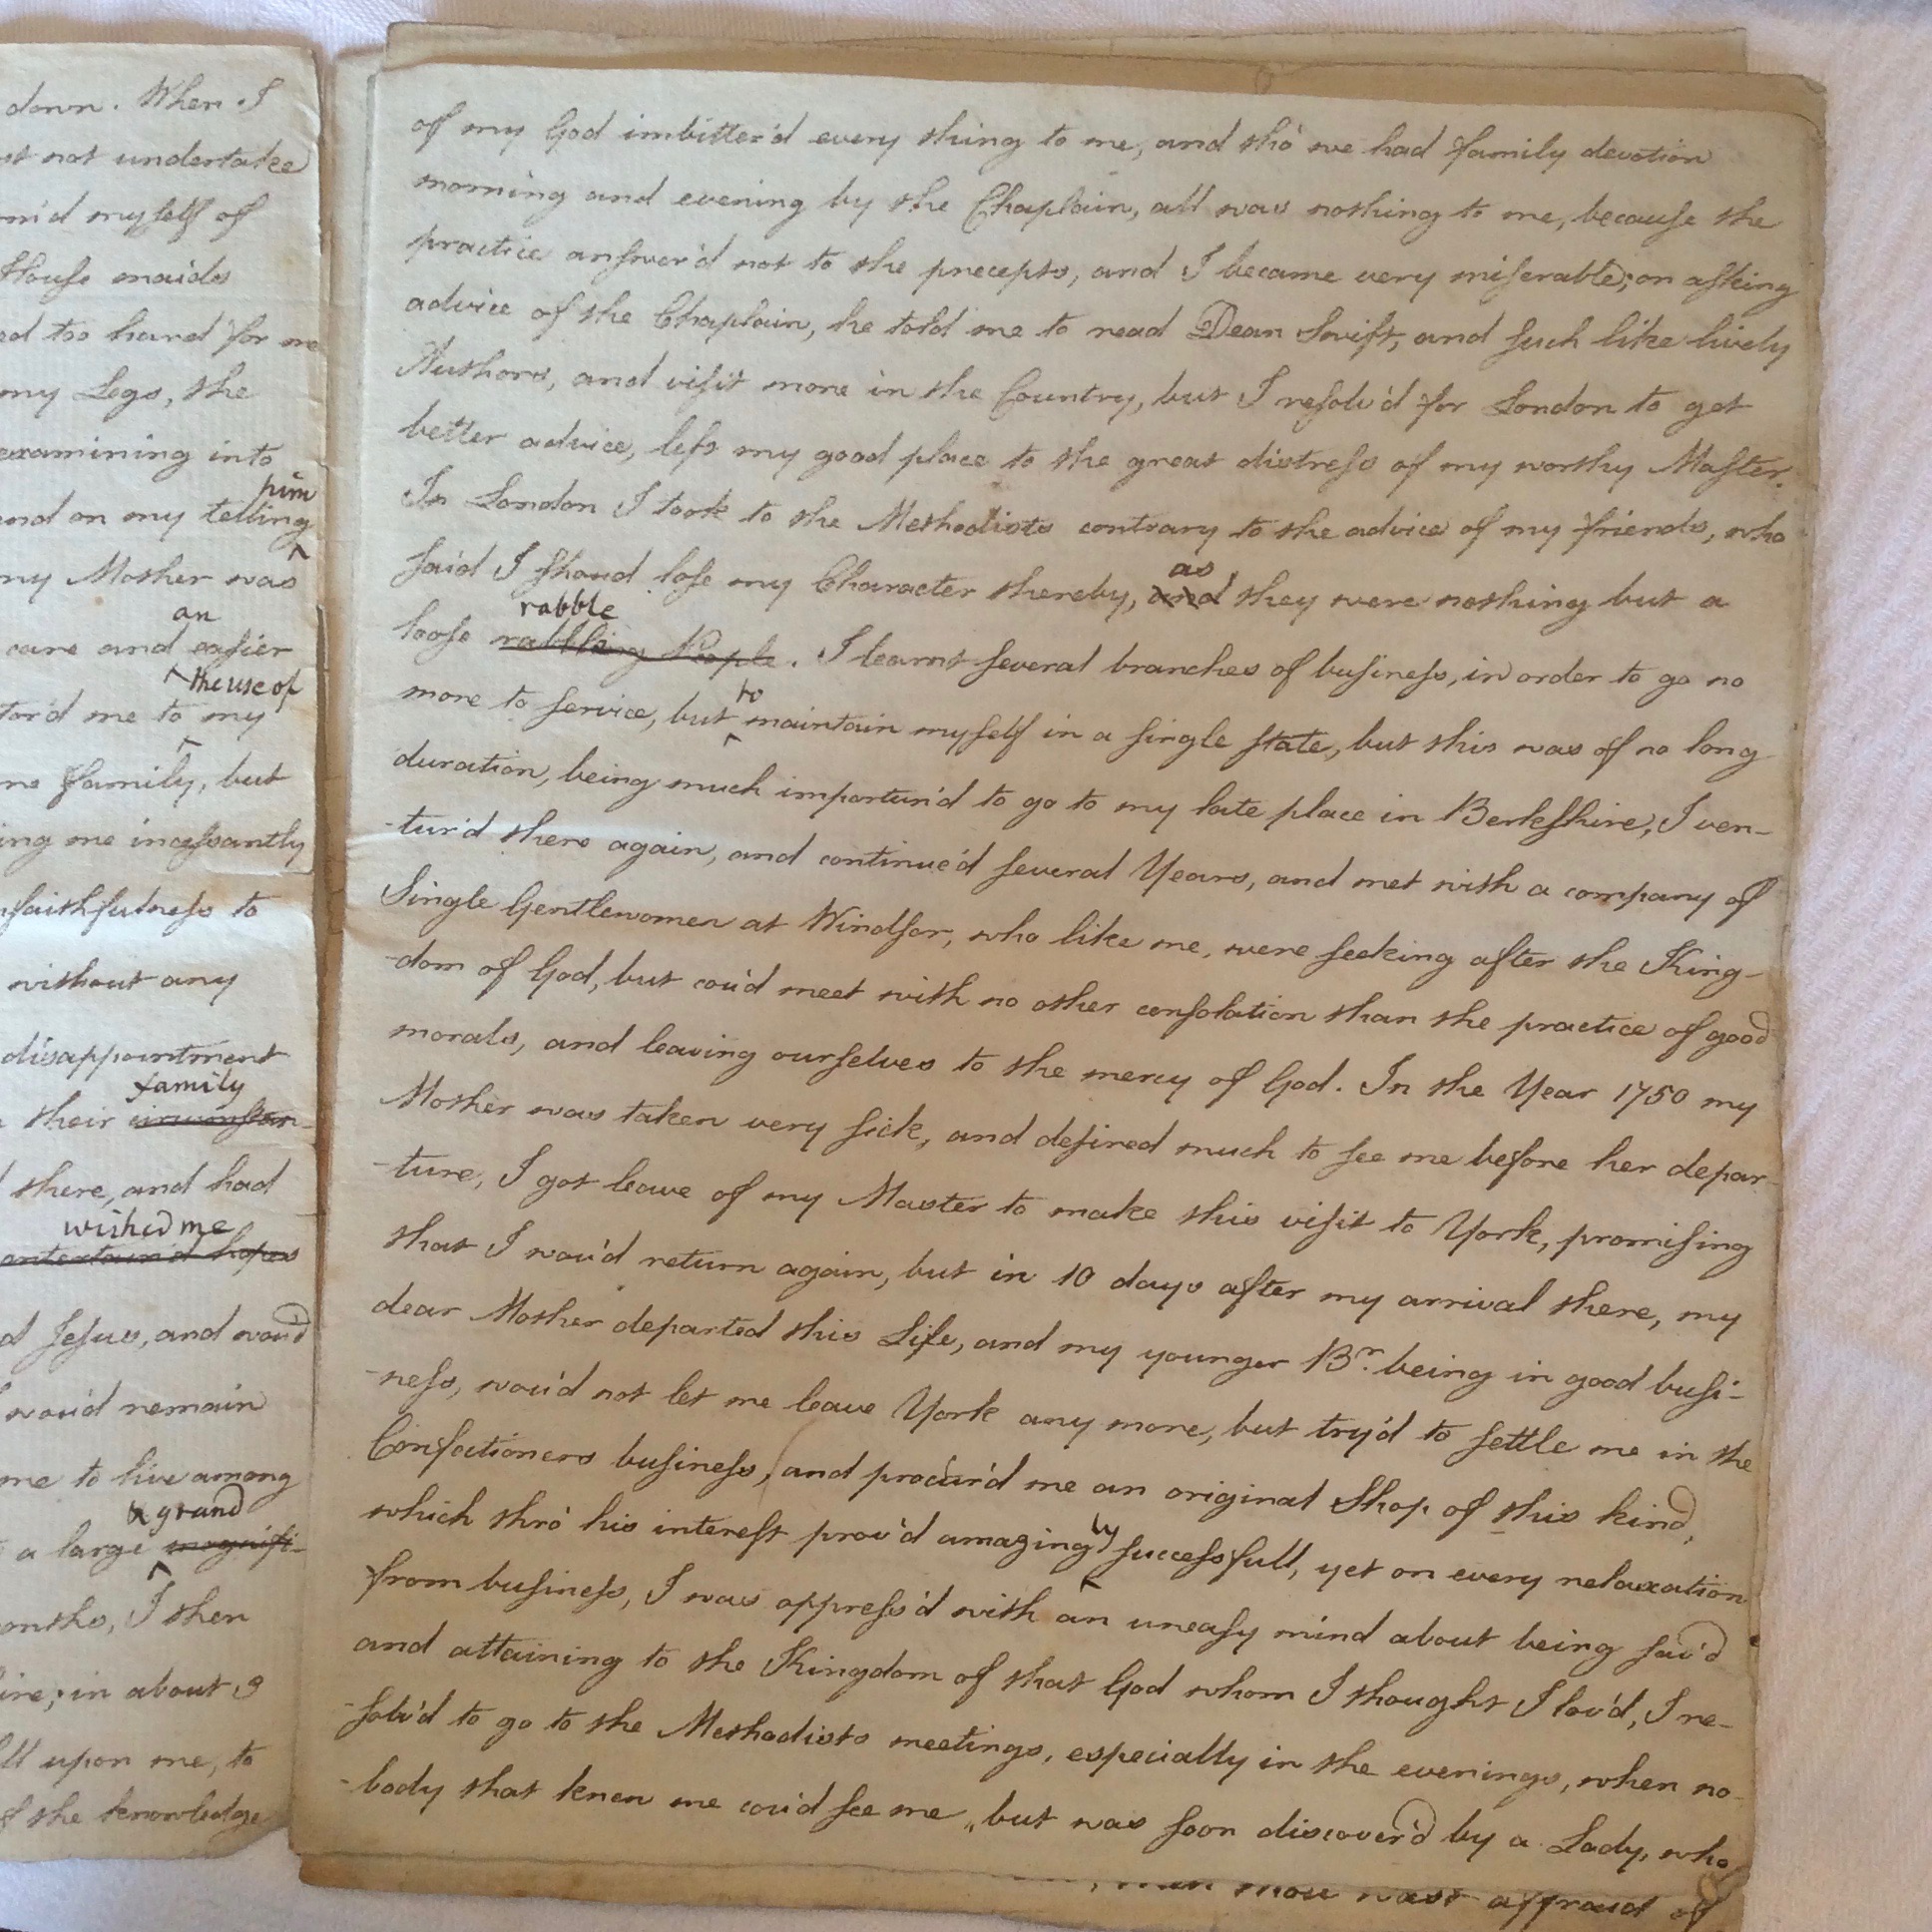 down. When I
not undertake
myself of
House maids
too hard for me
my Legs, she
examining into
him
and on my telling
my Mother was
an
care and easier
the use of
me to my
family, but
ing me incessantly
faithfulness to
without any
disappointment
family
their circumstan-
there, and had
wished me
entertain'd hopes
Jesus, and wou'd
wou'd remain
me to live among
& grand
a large magnifi-
I then
in about 9
upon me, to
the knowledge
of my God imbitter'd every thing to me, and tho' we had family devotion
morning and evening by the Chaplain, all was nothing to me, because the
practice answer'd not to the precepts, and I became very miserable; on asking
advice of the Chaplain, he told me to read Dean Swift, and such like lively
Authors, and visit more in the Country, but I resolv'd for London to get
better advice, left my good place to the great distress of my worthy Master.
In London I took to the Methodists contrary to the advice of my friends, who
as
said I shoud lose my Character thereby, and they were nothing but a
rabble
loose rabbling People. I learnt several branches of business, in order to go no
to
more to service, but maintain myself in a single state, but this was of no long
duration, being much importun'd to go to my late place in Berkshire, I ven-
-tur'd there again, and continue'd several Years, and met with a company of
Single Gentlewomen at Windsor, who like me, were seeking after the King-
-dom of God, but cou'd meet with no other consolation than the practice of good
morals, and leaving ourselves to the mercy of God. In the Year 1750 my
Mother was taken very sick, and desired much to see me before her depar-
-ture, I got leave of my Master to make this visit to York, promising
that I wou'd return again, but in 10 days after my arrival there, my
dear Mother departed this Life, and my younger Br. being in good busi-
-ness, wou'd not let me leave York any more, but try'd to settle me in the
Confectioners business, and procur'd me an original Shop of this kind,
which thro' his interest prov'd amazingly successfull, yet on every relaxation
from business, I was oppress'd with an uneasy mind about being sav'd
and attaining to the Kingdom of that God whom I thought I lov'd, I re-
-solv'd to go to the Methodists meetings, especially in the evenings, when no-
-body that knew me cou'd see me, but was soon discover'd by a Lady, who
thou wast affraid of